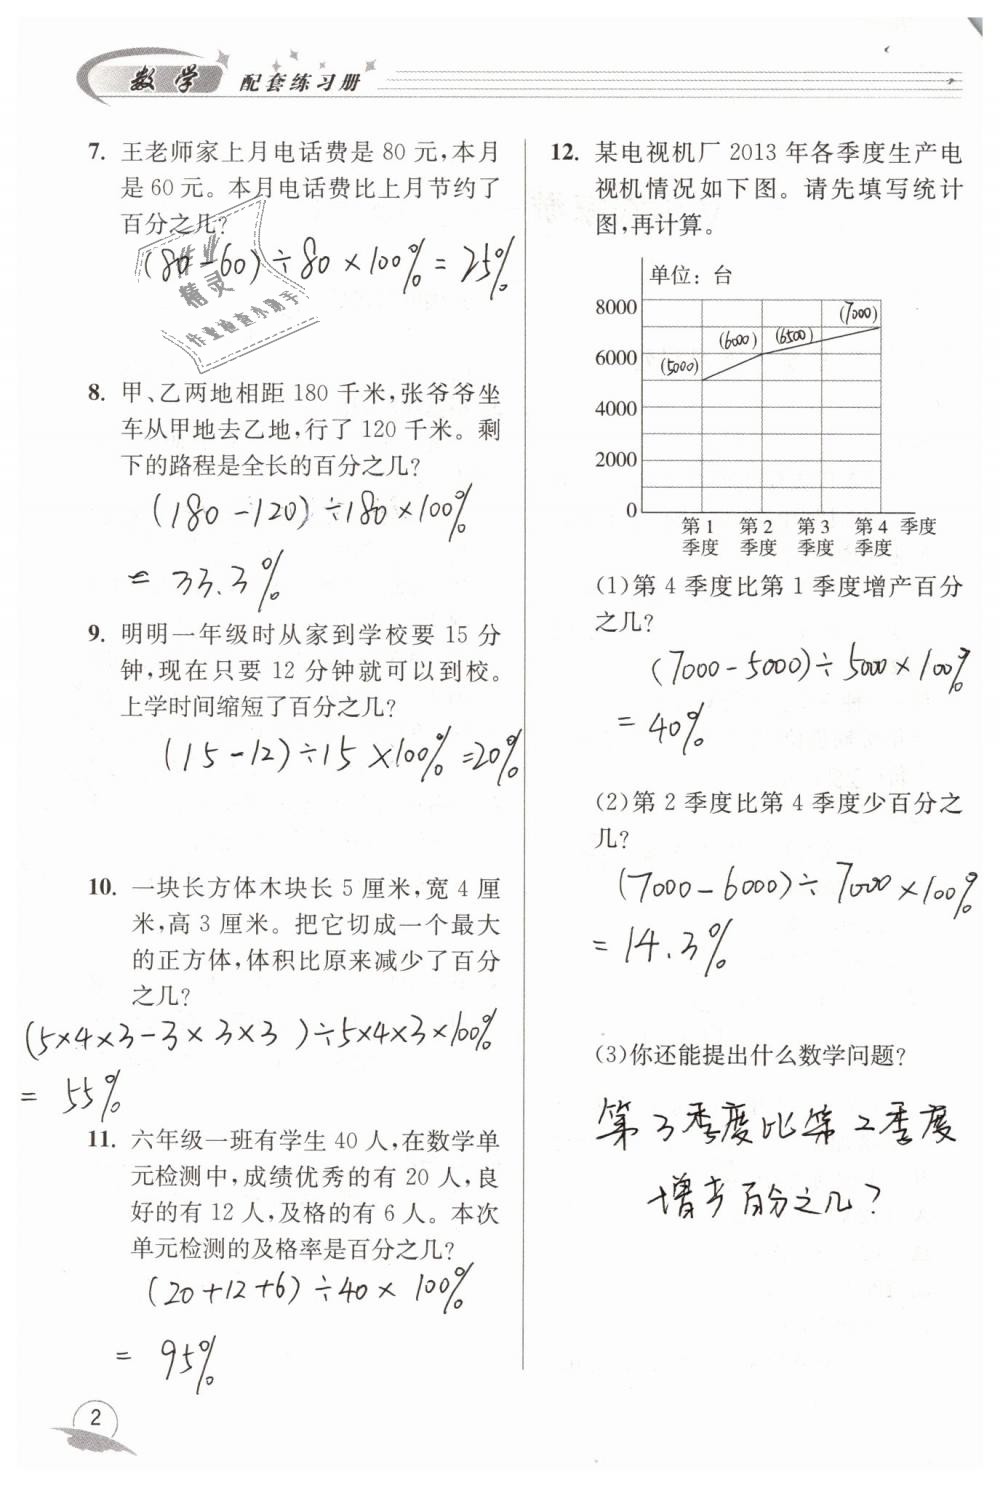 数学 配套练习册
7. 王老师家上月电话费是 80 元,本月
是 60 元。本月电话费比上月节约了
百分之几?
(80-60)÷80×100%=25%
作业
精灵
作业检查小助手
8. 甲、乙两地相距 180 千米,张爷爷坐
车从甲地去乙地,行了 120 千米。剩
下的路程是全长的百分之几?
(180-120)÷180×100%
=33.3%
9. 明明一年级时从家到学校要 15 分
钟,现在只要 12 分钟就可以到校。
上学时间缩短了百分之几?
(15-12)÷15×100%=20%
10. 一块长方体木块长 5 厘米,宽 4 厘
米,高 3 厘米。把它切成一个最大
的正方体,体积比原来减少了百分
之几?
(5×4×3-3×3×3)÷5×4×3×100%
=55%
11. 六年级一班有学生 40 人,在数学单
元检测中,成绩优秀的有 20 人,良
好的有 12 人,及格的有 6 人。本次
单元检测的及格率是百分之几?
(20+12+6)÷40×100%
=95%
2
12. 某电视机厂 2013 年各季度生产电
视机情况如下图。请先填写统计
图,再计算。
单位:台
8000
6000
4000
2000
0
(5000)
(6000)
(6500)
(7000)
第 1 第 2 第 3 第 4 季度
季度 季度 季度 季度
(1)第 4 季度比第 1 季度增产百分
之几?
(7000-5000)÷5000×100%
=40%
(2)第 2 季度比第 4 季度少百分之
几?
(7000-6000)÷7000×100%
=14.3%
(3)你还能提出什么数学问题?
第3季度比第2季度
增产百分之几?